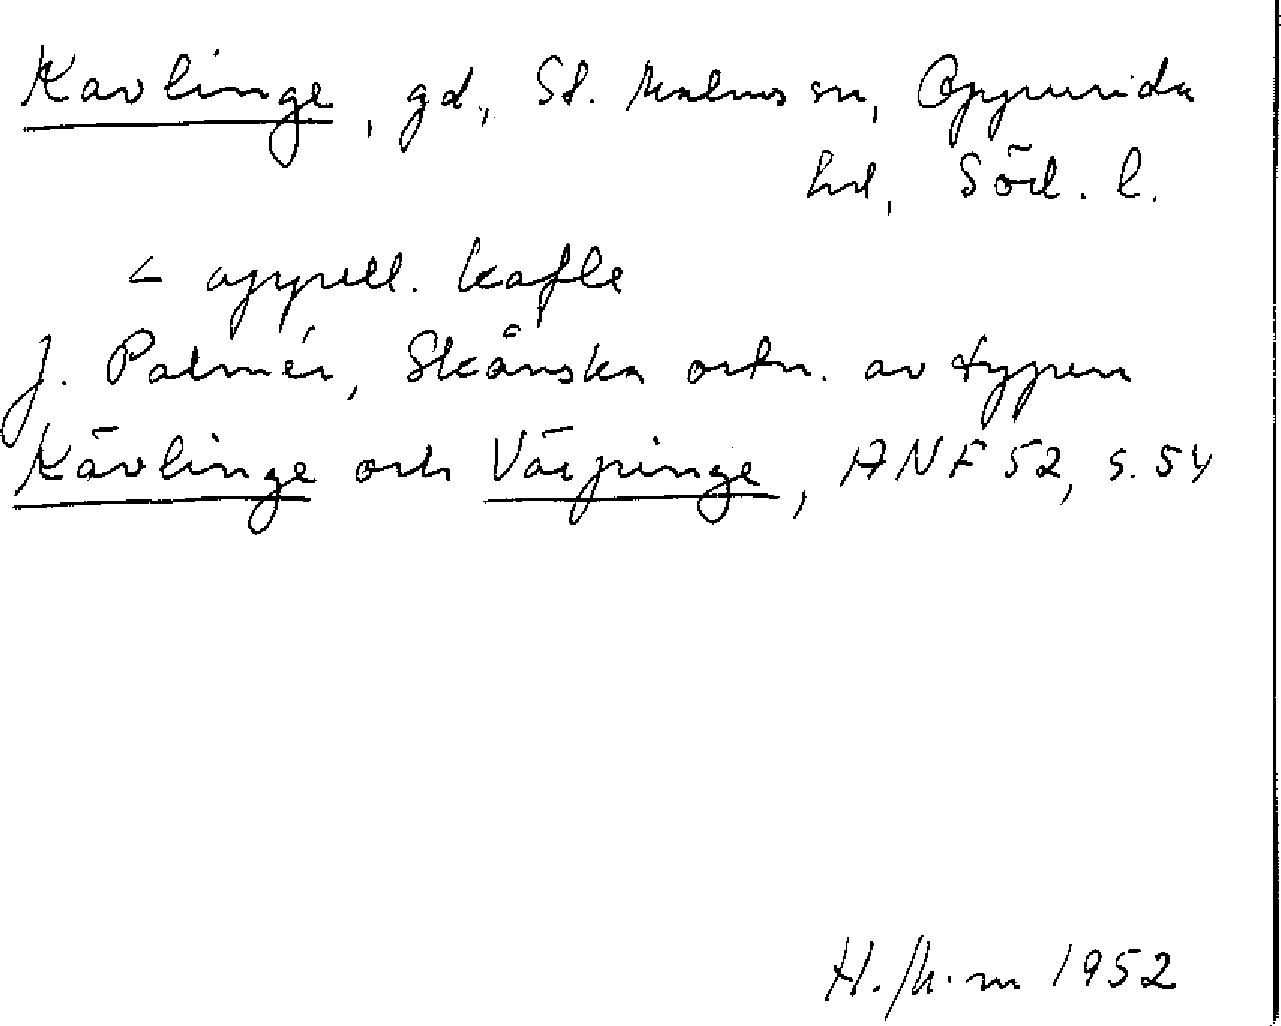 Kavlinge, gd., St. Malms sn, Oppunda
hd, Söd. l.
< appell. kafle
J. Palmér, Skånska ortn. av typen
Kävlinge och Värpinge, ANF 52, s. 54
H. 1952